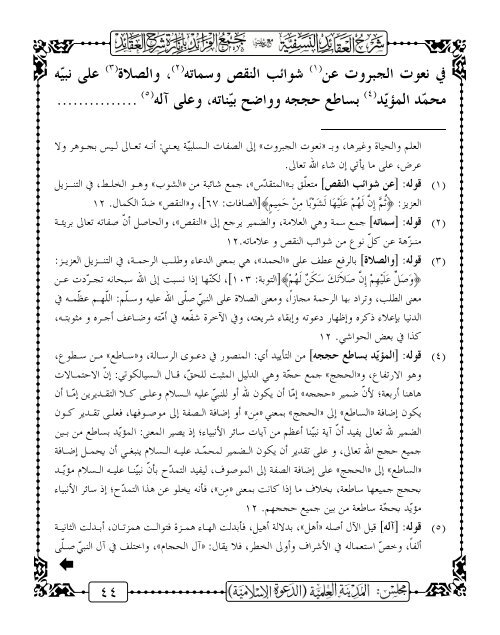 شرح العقائد النسفية مع جمع الفرائد بإنارة شرح العقائد
في نعوت الجبروت عن(١) شوائب النقص وسماته(٢)، والصلاة(٣) على نبيّه
محمّد المؤيّد(٤) بساطع حججه وواضح بيّناته، وعلى آله(٥) ...............
العلم والحياة وغيرها، وبـ «نعوت الجبروت» إلى الصفات السلبيّة يعني: أنه تعالى ليس بجوهر ولا
عرض، على ما يأتي إن شاء الله تعالى.
(١) قوله: [عن شوائب النقص] متعلّق بـ«المتقدّس»، جمع شائبة من «الشوب» وهو الخلط، في التنـزيل
العزيز: ﴿ثُمَّ إِنَّ لَهُمْ عَلَيْهَا لَشَوْبًا مِنْ حَمِيمٍ﴾[الصافات: ٦٧]، و«النقص» ضدّ الكمال. ١٢
(٢) قوله: [سماته] جمع سمة وهي العلامة، والضمير يرجع إلى «النقص»، والحاصل أنّ صفاته تعالى بريئة
منـزّهة عن كلّ نوع من شوائب النقص و علاماته.١٢
(٣) قوله: [والصلاة] بالرفع عطف على «الحمد»، هي بمعنى الدعاء وطلب الرحمة، في التنـزيل العزيز:
﴿وَصَلِّ عَلَيْهِمْ إِنَّ صَلَاتَكَ سَكَنٌ لَهُمْ﴾[التوبة: ١٠٣]، لكنّها إذا نسبت إلى الله سبحانه تجرّدت عن
معنى الطلب، وتراد بها الرحمة مجازاً، ومعنى الصلاة على النبيّ صلّى الله عليه وسلّم: اللّهم عظّمه في
الدنيا بإعلاء ذكره وإظهار دعوته وإبقاء شريعته، وفي الآخرة شفّعه في أمّته وضاعف أجره و مثوبته،
كذا في بعض الحواشي. ١٢
(٤) قوله: [المؤيّد بساطع حججه] من التأييد أي: المنصور في دعوى الرسالة، و«ساطع» مـن سطوع،
وهو الارتفاع، و«الحجج» جمع حجّة وهي الدليل المثبت للحقّ، قال السيالكوتي: إنّ الاحتمالات
هاهنا أربعة؛ لأنّ ضمير «حججه» إمّا أن يكون لله أو للنبيّ عليه السلام وعلى كلا التقديرين إمّا أن
يكون إضافة «الساطع» إلى «الحجج» بمعنى «مِن» أو إضافة الصفة إلى موصوفها، فعلى تقدير كون
الضمير لله تعالى يفيد أنّ آية نبيّنا أعظم من آيات سائر الأنبياء؛ إذ يصير المعنى: المؤيّد بساطع من بين
جميع حجج الله تعالى، و على تقدير أن يكون الضمير لمحمّد عليه السلام ينبغي أن يحمل إضافة
«الساطع» إلى «الحجج» على إضافة الصفة إلى الموصوف، ليفيد التمدّح بأنّ نبيّنا عليه السلام مؤيّد
بحجج جميعها ساطعة، بخلاف ما إذا كانت بمعنى «مِن»، فأنه يخلو عن هذا التمدّح؛ إذ سائر الأنبياء
مؤيّد بحجّة ساطعة من بين جميع حججهم. ١٢
(٥) قوله: [آله] قيل الآل أصله «أهل»، بدلالة أهيل، فأبدلت الهاء همزة فتوالت همزتان، أبدلت الثانية
ألفاً، وخصّ استعماله في الأشراف وأولى الخطر، فلا يقال: «آل الحجام»، واختلف في آل النبيّ صلّى
مجلس: المدينة العلمية (الدعوة الإسلامية)
٤٤